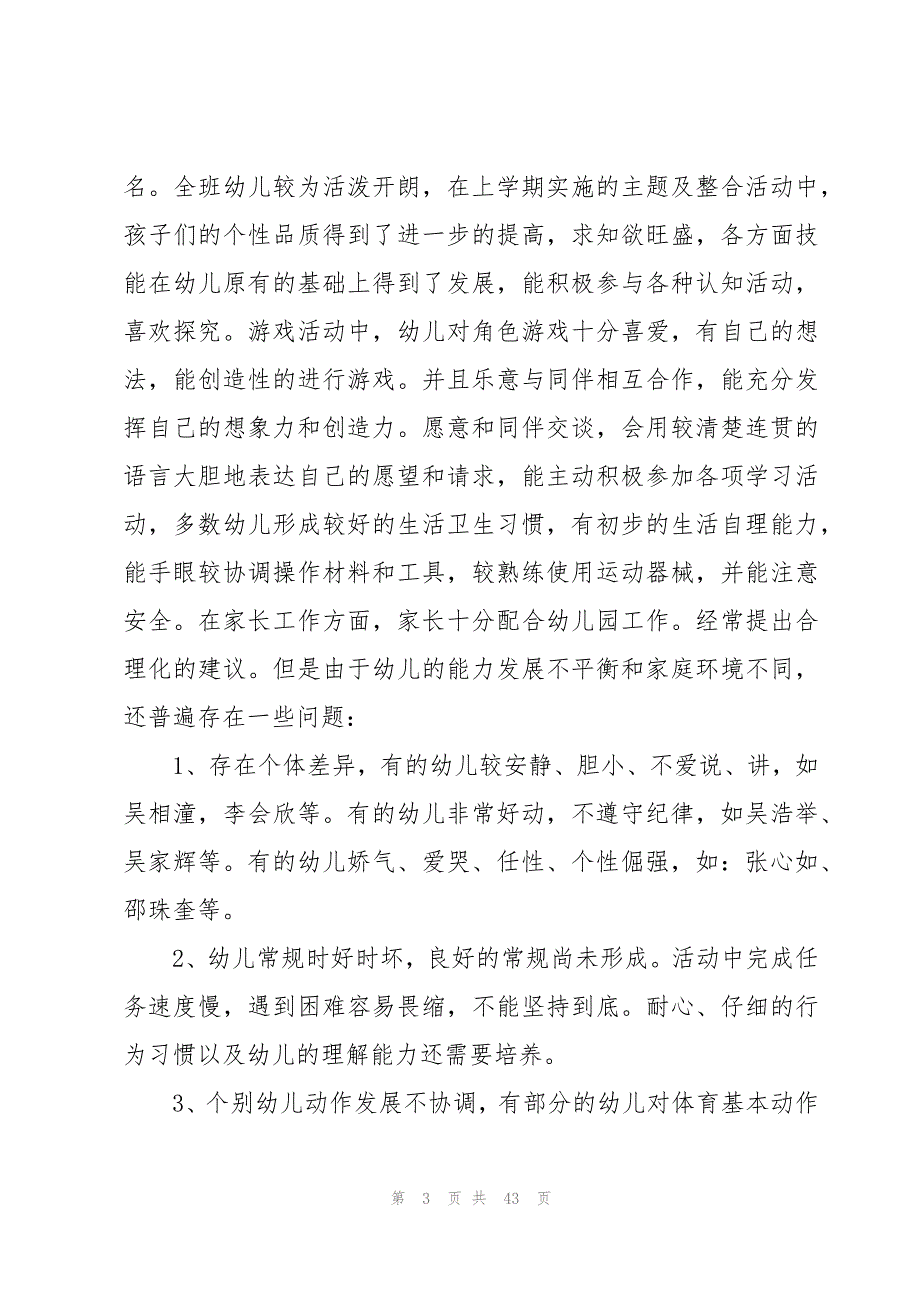 名。全班幼儿较为活泼开朗，在上学期实施的主题及整合活动中，
孩子们的个性品质得到了进一步的提高，求知欲旺盛，各方面技
能在幼儿原有的基础上得到了发展，能积极参与各种认知活动，
喜欢探究。游戏活动中，幼儿对角色游戏十分喜爱，有自己的想
法，能创造性的进行游戏。并且乐意与同伴相互合作，能充分发
挥自己的想象力和创造力。愿意和同伴交谈，会用较清楚连贯的
语言大胆地表达自己的愿望和请求，能主动积极参加各项学习活
动，多数幼儿形成较好的生活卫生习惯，有初步的生活自理能力，
能手眼较协调操作材料和工具，较熟练使用运动器械，并能注意
安全。在家长工作方面，家长十分配合幼儿园工作。经常提出合
理化的建议。但是由于幼儿的能力发展不平衡和家庭环境不同，
还普遍存在一些问题：
1、存在个体差异，有的幼儿较安静、胆小、不爱说、讲，如
吴相潼，李会欣等。有的幼儿非常好动，不遵守纪律，如吴浩举、
吴家辉等。有的幼儿娇气、爱哭、任性、个性倔强，如：张心如、
邵珠奎等。
2、幼儿常规时好时坏，良好的常规尚未形成。活动中完成任
务速度慢，遇到困难容易畏缩，不能坚持到底。耐心、仔细的行
为习惯以及幼儿的理解能力还需要培养。
3、个别幼儿动作发展不协调，有部分的幼儿对体育基本动作
第 3 页 共 43 页